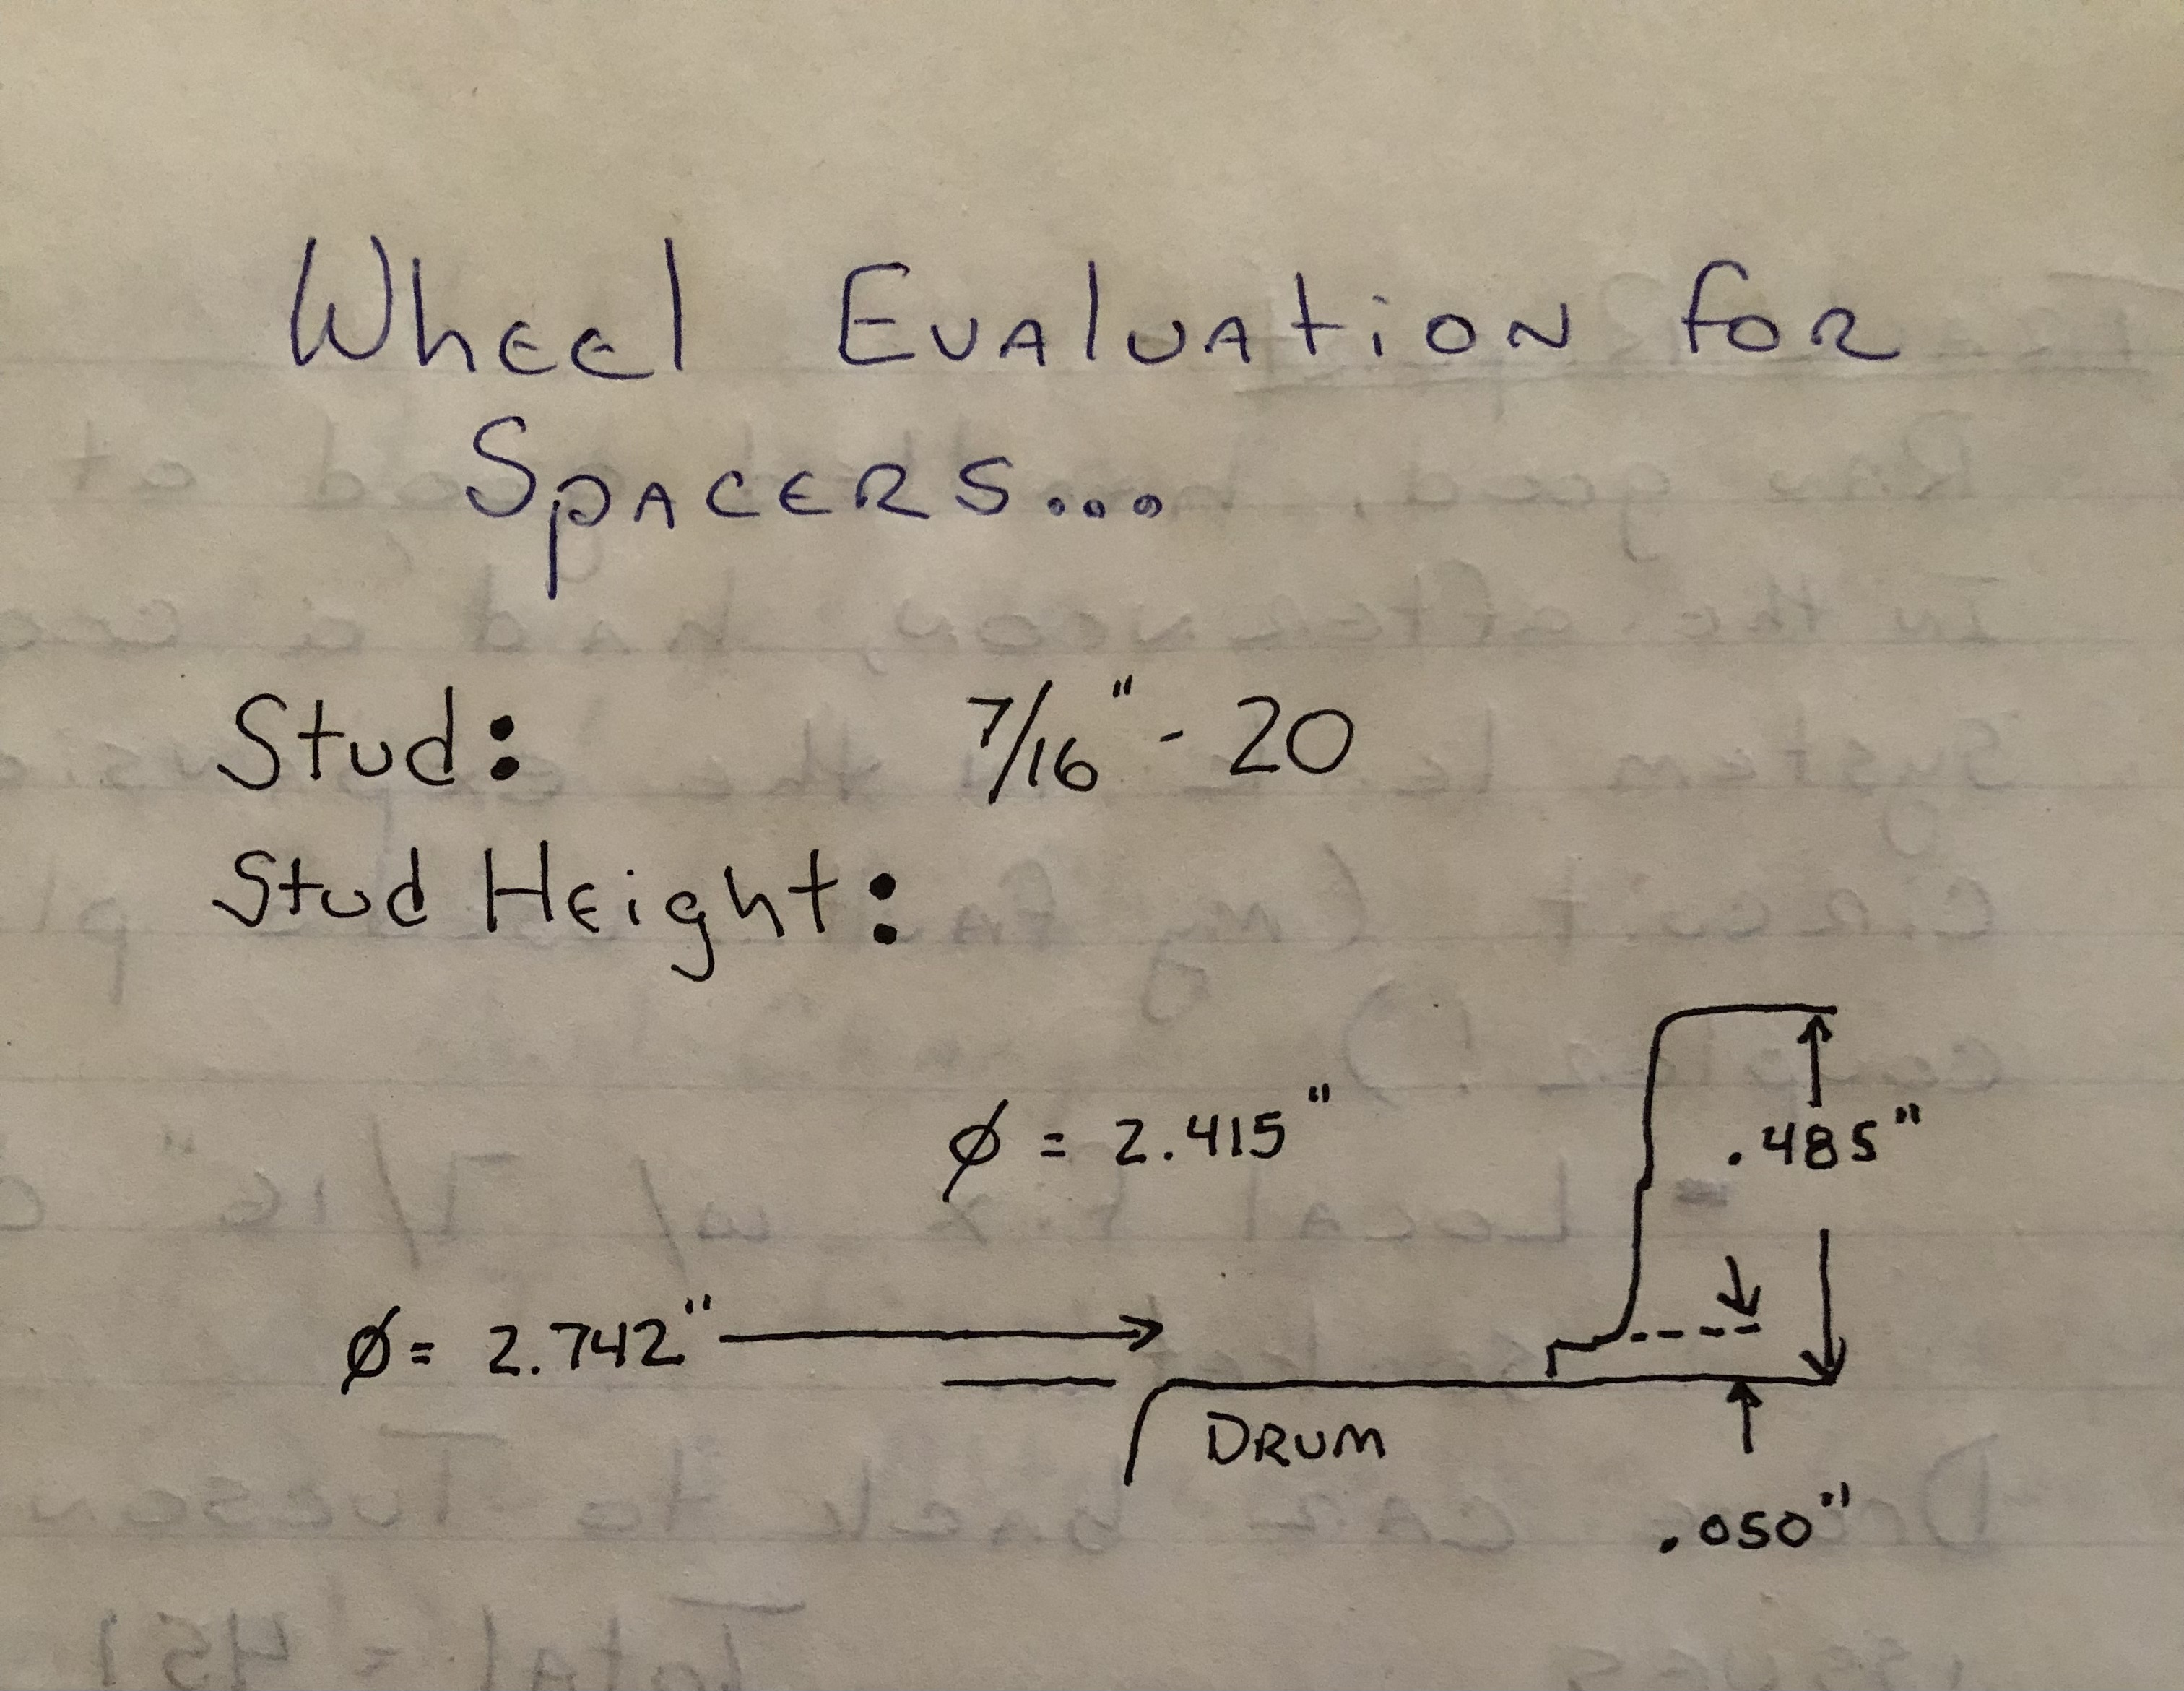 Wheel Evaluation for
Spacers...
Stud: 7/16" - 20
Stud Height:
ø = 2.415"
.485"
ø = 2.742"
DRUM
.050"